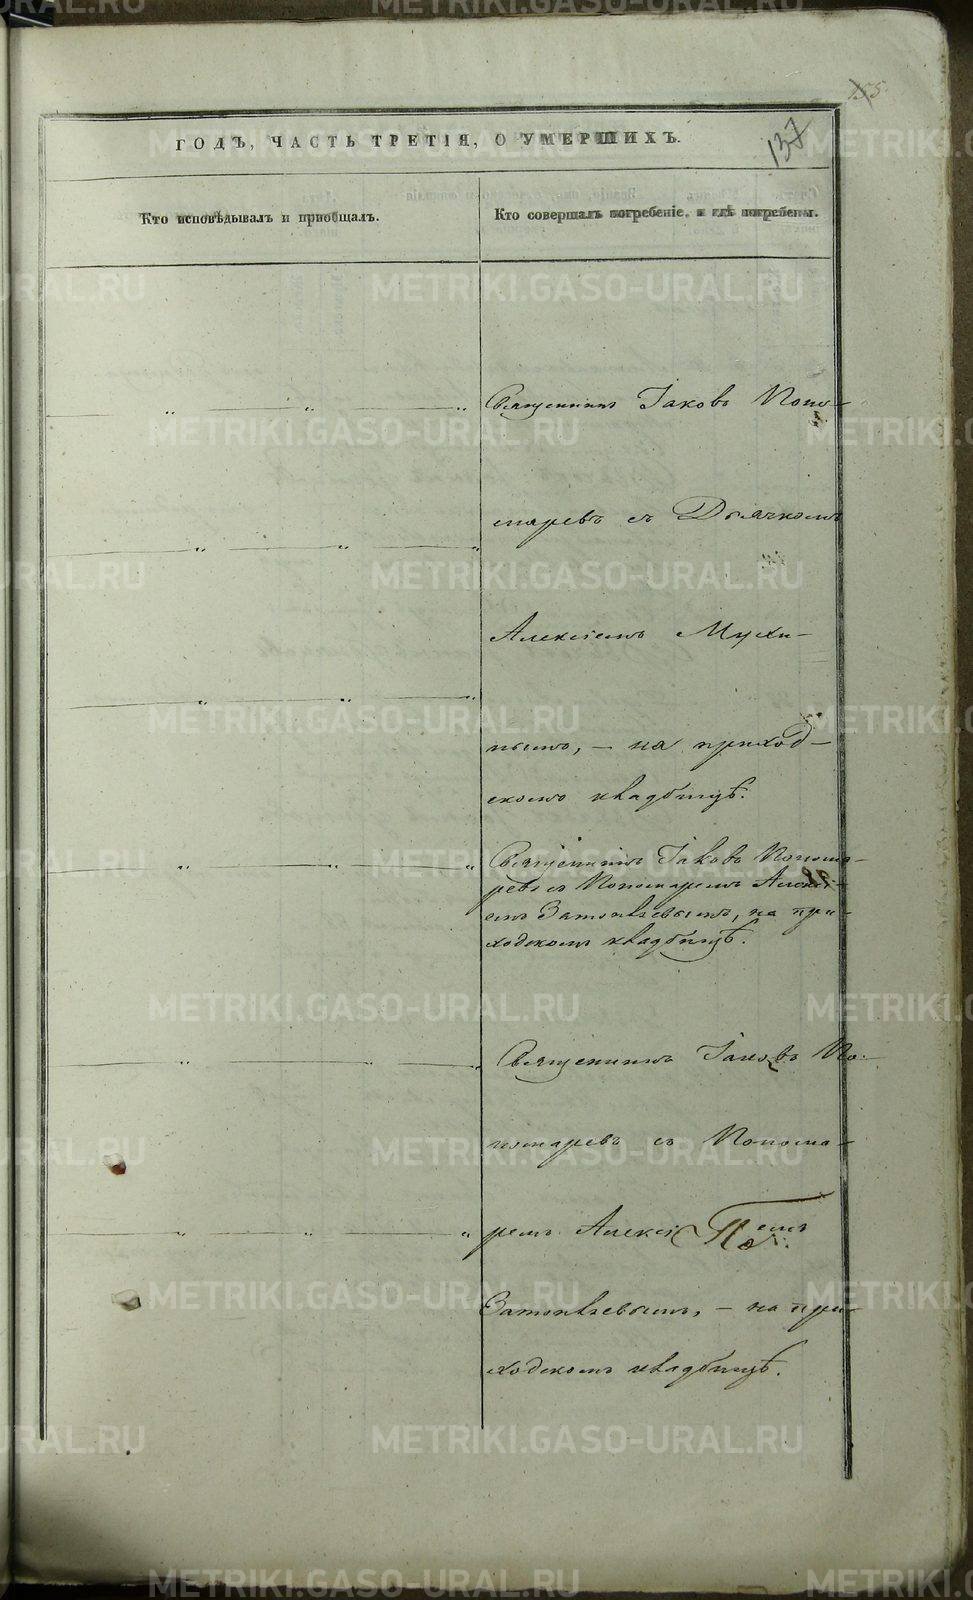 155
137
ГОДЪ, ЧАСТЬ ТРЕТІЯ, О УМЕРШИХЪ.
Кто исповѣдывалъ и пріобщалъ.
Кто совершалъ погребеніе, и гдѣ погребены.
Священникъ Іаковъ Поно-
маревъ съ Дьячкомъ
Алексіемъ Мухи-
нымъ, – на приход-
скомъ кладбищѣ.
Священникъ Іаковъ Понома-
ревъ съ Пономаремъ Алексі-
емъ Затопляевымъ, на при-
ходскомъ кладбищѣ.
Священникъ Іаковъ По-
номаревъ съ Понома-
ремъ Алексіемъ
Затопляевымъ, – на при-
ходскомъ кладбищѣ.
METRIKI.GASO-URAL.RU